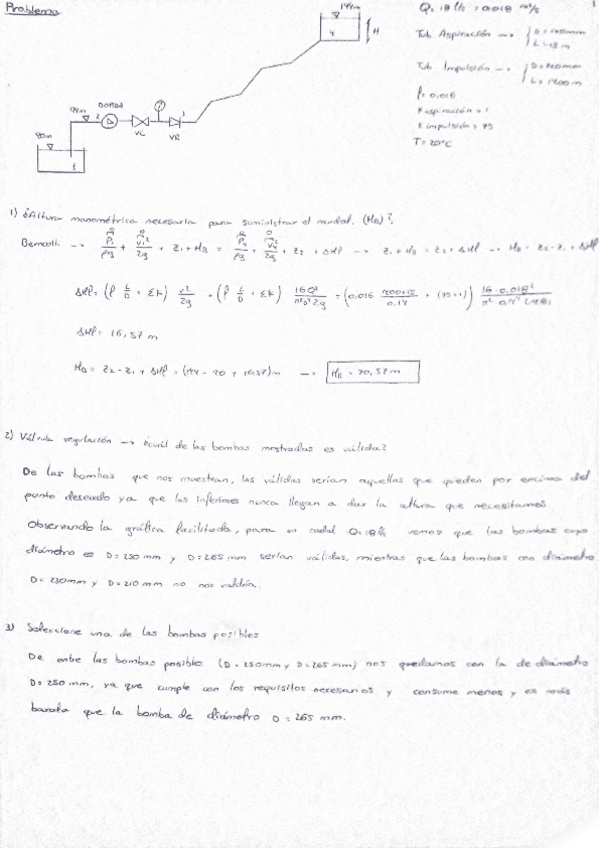 Problema
1
144m
4
H
Q = 18 l/s = 0.018 m³/s
Tub. Aspiración → D = 140mm
L = 15 m
Tub. Impulsión → D = 140mm
L =
f = 0.016
K aspiración = 1
K impulsión = 75
T = 20°C
BOMBA
2
3
VC
VR
90m
1
1) ¿Altura manométrica necesaria para suministrar el caudal. (HB)?
Bernoulli →
ΔHf = 16,57 m
HB = Z2 - Z1 + ΔHf =
HB = 70,52 m
2) Válvula regulación → ¿cuál de las bombas mostradas es válida?
De las bombas que nos muestran, las válidas serían aquellas que queden por encima del
punto deseado ya que las inferiores nunca llegan a dar la altura que necesitamos.
Observando la gráfica facilitada, para un caudal Q=18 l/s vemos que las bombas cuyo
diámetro es D = 250 mm y D = 265 mm serían válidas, mientras que las bombas con diámetro
D = 230mm y D = 210 mm no nos valdría.
3) Seleccione una de las bombas posibles
De entre las bombas posibles (D = 250mm y D = 265 mm) nos quedamos con la de diámetro
D = 250 mm, ya que cumple con los requisitos necesarios y consume menos y es más
barata que la bomba de diámetro D = 265 mm.